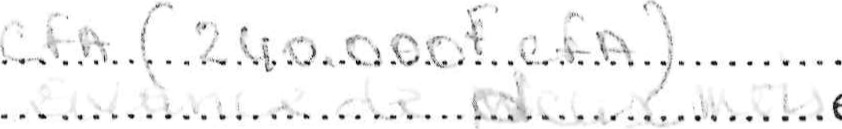 CFA (240.000F CFA)
avance de deux mois e